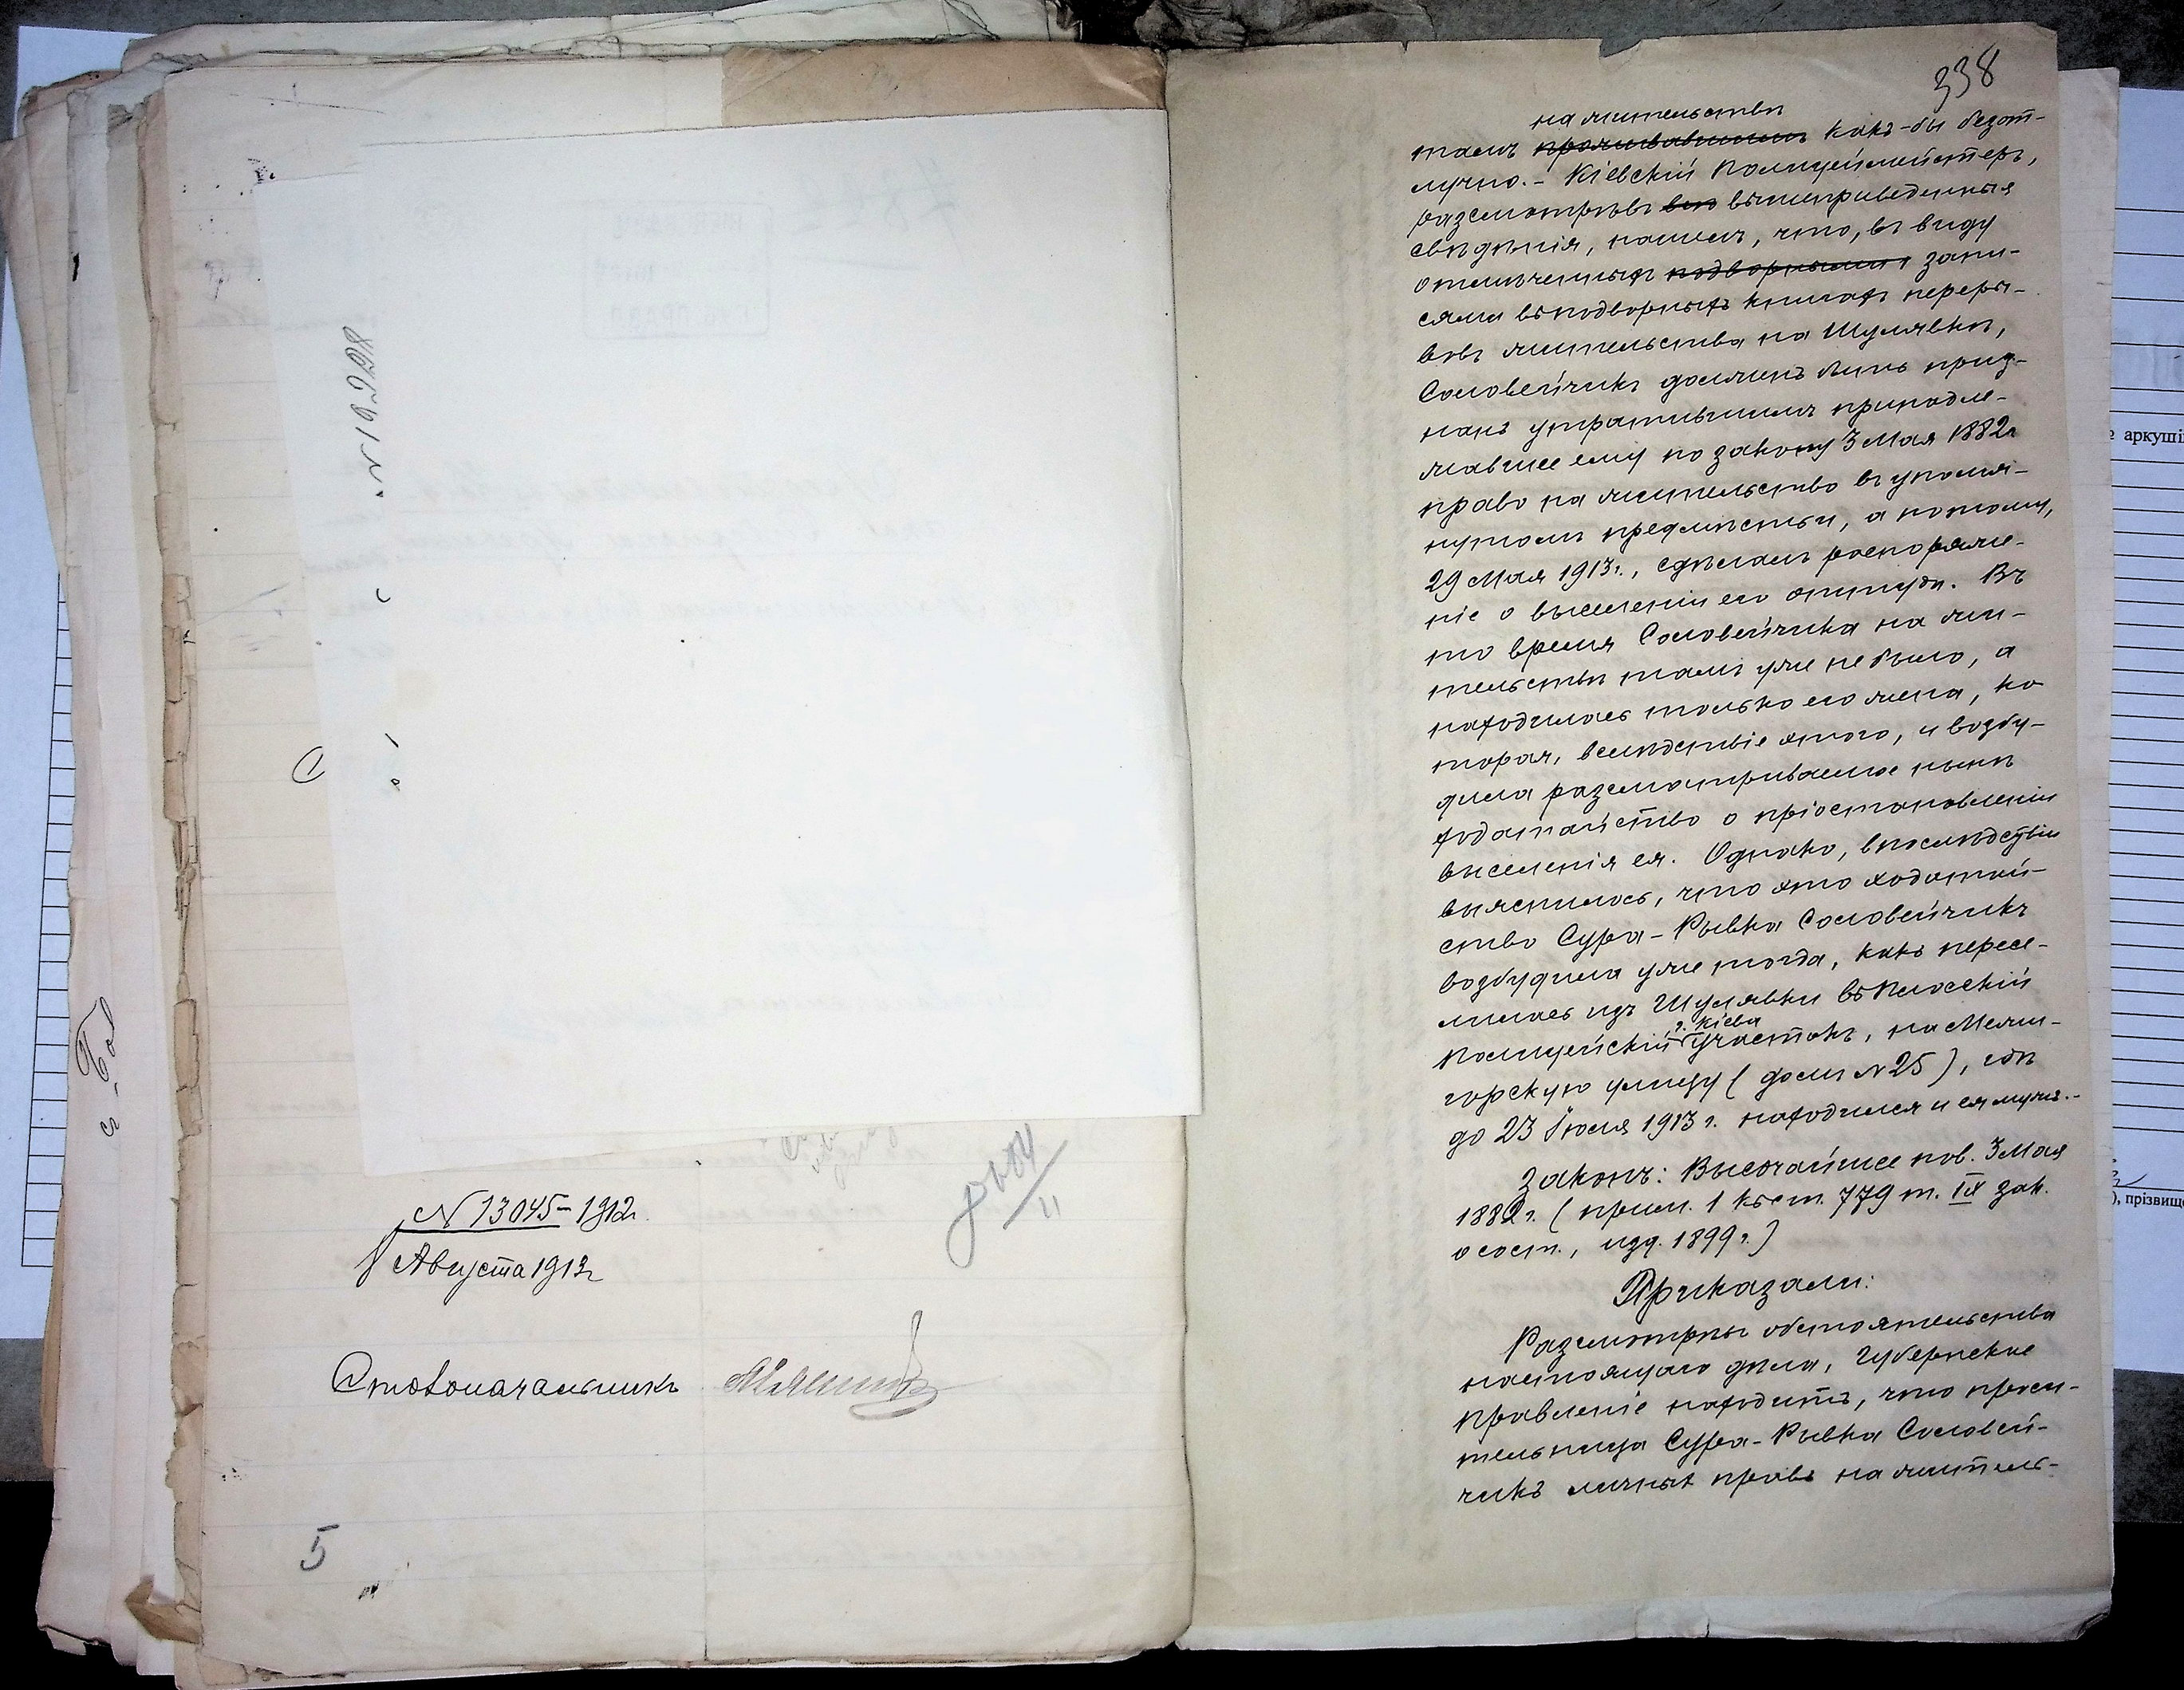 № 19298
№ 13045-1912г.
8 Августа 1912г
Столоначальникъ
5
338
на жительствѣ
тамъ проживавшимъ какъ-бы безот-
лучно.- Кіевскій Полицеймейстеръ,
разсмотрѣвъ всѣ вышеприведенныя
свѣдѣнія, нашелъ, что, въ виду
отмѣченныхъ подворными запи-
сями въ подворныхъ книгахъ переры-
вовъ жительства на Шулявкѣ,
Соловейчикъ долженъ быть приз-
нанъ утратившимъ принадле-
жавшее ему по закону 3 Мая 1882г
право на жительство въ упомя-
нутомъ предмѣстьи, а потому,
29 Мая 1913г., сдѣлалъ распоряже-
ніе о выселеніи его оттуда. Въ
то время Соловейчика на жи-
тельствѣ тамъ уже не было, а
находилась только его жена, ко
торая, вслѣдствіе этого, и возбу-
дила разсматриваемое нынѣ
ходатайство о пріостановленіи
выселенія ея. Однако, впослѣдствіи
выяснилось, что это ходатай-
ство Сура-Рывка Соловейчикъ
возбудила уже тогда, какъ пересе-
лилась изъ Шулявки въ Плосскій
г. Кіева
Полицейскій участокъ, на Межи-
горскую улицу (домъ № 25), гдѣ
до 23 Іюля 1913 г. находился и ея мужъ.-
Законъ: Высочайшее пов. 3 Мая
1882г. (прим. 1 къ ст. 779 т. IX зак.
о сост., изд. 1899 г.)
Приказали:
Разсмотрѣвъ обстоятельства
настоящаго дѣла, Губернское
Правленіе находитъ, что проси-
тельница Сура-Рывка Соловей-
чикъ личныхъ правъ на житель-
аркуші
), прізвищ